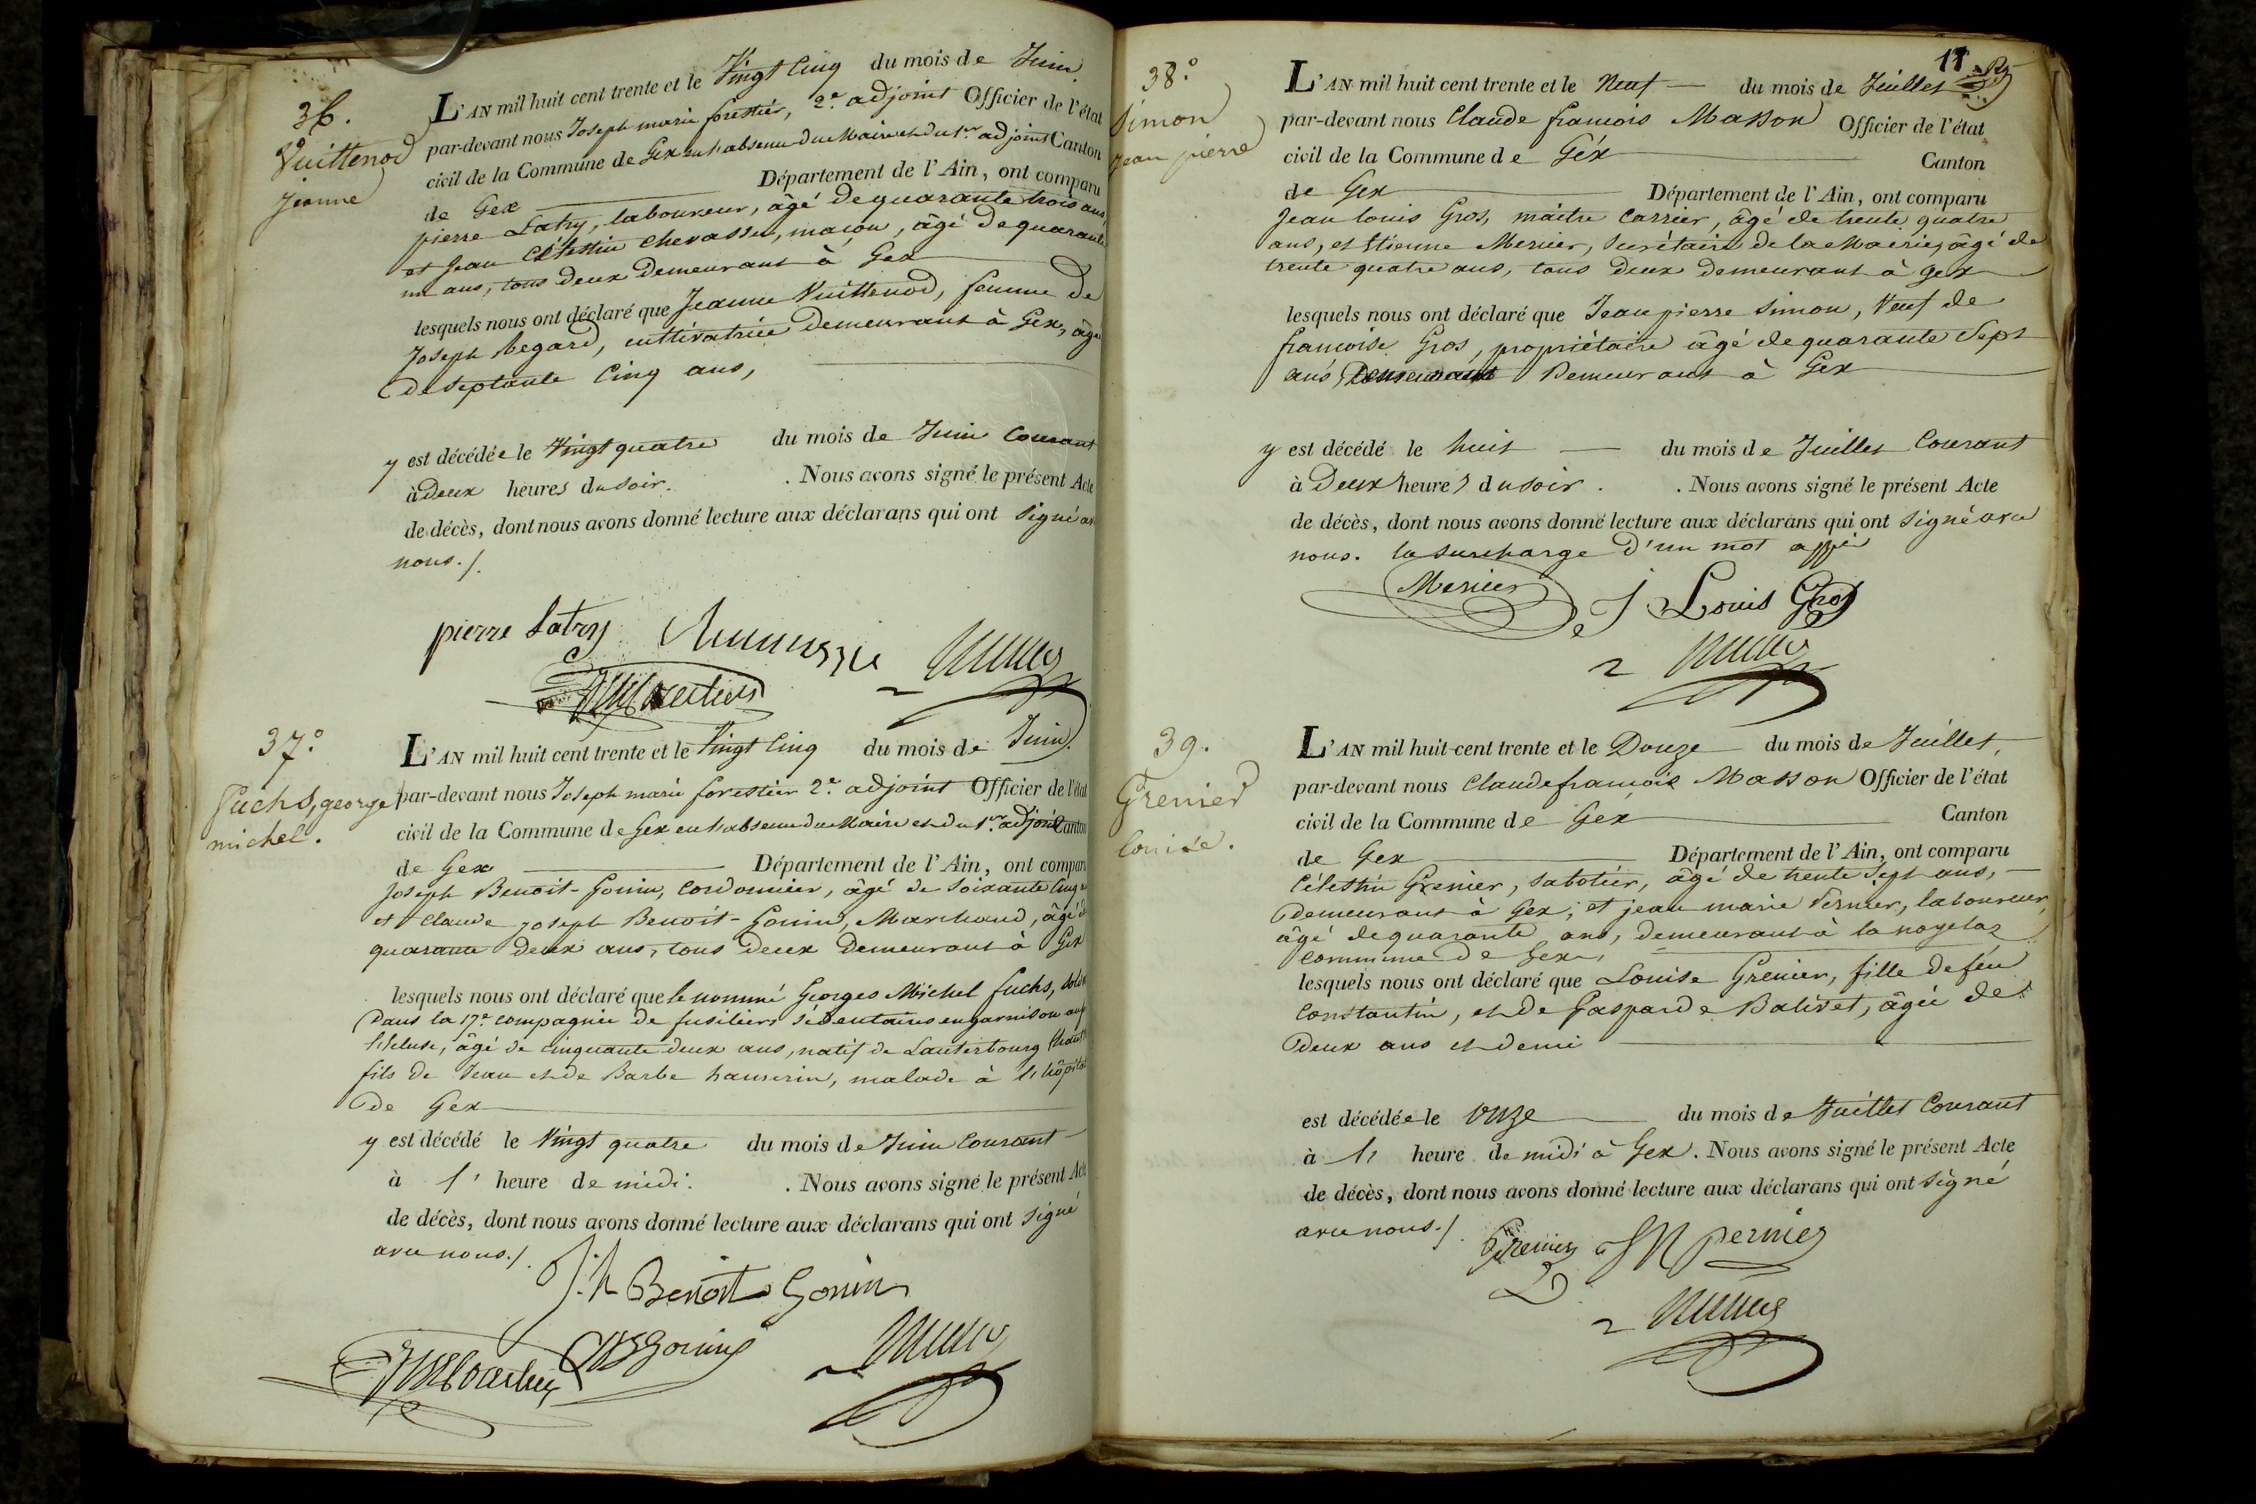 36.
Vuittenod
Jeanne
L'AN mil huit cent trente et le Vingt Cinq du mois de Juin
par-devant nous Joseph marie forestier, 2.e adjoint Officier de l'état
civil de la Commune de Gex en l'absence du Maire et du 1.er adjoint Canton
de Gex Département de l'Ain, ont comparu
pierre Latry, laboureur, âgé de quarante trois ans,
et Jean Célestin Chevassu, maçon, âgé de quarante
un ans, tous deux Demeurant à Gex
lesquels nous ont déclaré que Jeanne Vuittenod, femme de
Joseph begard, cultivatrice demeurant à Gex, âgée
de septante Cinq ans,
y est décédée le Vingt quatre du mois de Juin Courant
à Deux heures du soir. . Nous avons signé le présent Acte
de décès, dont nous avons donné lecture aux déclarans qui ont signé av
nous./.
pierre Latry
37.°
Fuchs, george
michel.
L'AN mil huit cent trente et le Vingt Cinq du mois de Juin.
par-devant nous Joseph marie forestier 2.e adjoint Officier de l'état
civil de la Commune de Gex en l'absence du Maire et du 1.er adjoint Canton
de Gex Département de l'Ain, ont comparu
Joseph Benoit-Gonin, Cordonnier, âgé de soixante Cinq
et Claude Joseph Benoit-Gonin, Marchand, âgé de
quarante deux ans, tous deux Demeurant à Gex
lesquels nous ont déclaré que le nommé Georges Michel fuchs, sold
Dans la 17.e compagnie de fusiliers sédentaires en garnison au f
l'Ecluse, âgé de cinquante deux ans, natif de Lauterbourg
fils de Jean et de Barbe hauserin, malade à l'hôpital
de Gex
y est décédé le Vingt quatre du mois de Juin Courant
à 1' heure de midi. . Nous avons signé le présent Acte
de décès, dont nous avons donné lecture aux déclarans qui ont signé
avec nous./.
J.h Benoit Gonin
CJBGonin
11
38.°
Simon
Jean pierre
L'AN mil huit cent trente et le Neuf du mois de Juillet
par-devant nous Claude françois Masson Officier de l'état
civil de la Commune de Géx Canton
de Gex Département de l'Ain, ont comparu
Jean louis Gros, maitre Carrier, âgé de trente quatre
ans, et Etienne Mercier, secrétaire de la Mairie, âgé de
trente quatre ans, tous Deux demeurant à gex
lesquels nous ont déclaré que Jean pierre Simon, Veuf de
françoise Gros, propriétaire âgé de quarante Sept
ans, Demeurant à Gex
y est décédé le huit du mois de Juillet Courant
à Deux heures du soir. . Nous avons signé le présent Acte
de décès, dont nous avons donné lecture aux déclarans qui ont signé avec
nous. la surcharge d'un mot app.ée
Mercier J Louis Gros
39.
Grenier
louise.
L'AN mil huit cent trente et le Douze du mois de Juillet,
par-devant nous Claude françois Masson Officier de l'état
civil de la Commune de Géx Canton
de Gex Département de l'Ain, ont comparu
Célestin Grenier, sabotier, âgé de trente sept ans,
Demeurant à Gex, et jean marie Pernier, laboureur,
âgé de quarante ans, demeurant à la noyelaz
commune de Gex,
lesquels nous ont déclaré que Louise Grenier, fille de feu
Constantin, et de Gasparde Balivet, âgée de
Deux ans et demi
est décédée le onze du mois de Juillet Courant
à 11 heure de midi à Gex. Nous avons signé le présent Acte
de décès, dont nous avons donné lecture aux déclarans qui ont signé
avec nous./.
Grenier JM pernier